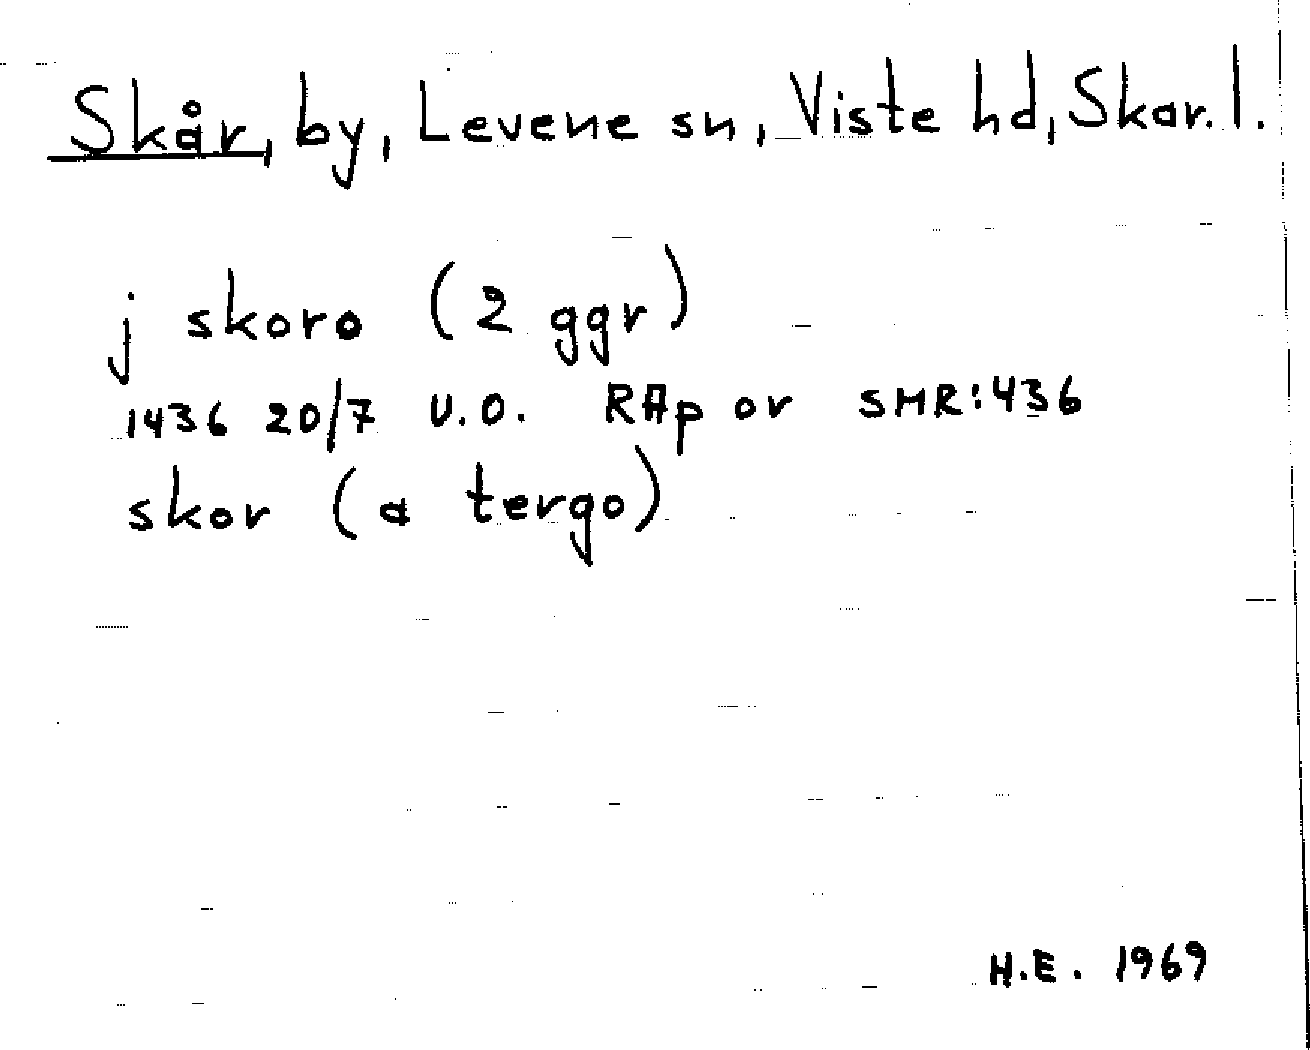 Skår, by, Levene sn, Viste hd, Skar. l.
j skoro (2 ggr)
1436 20/7 U.O. RAp or SMR:436
skor (a tergo)
H.E. 1969